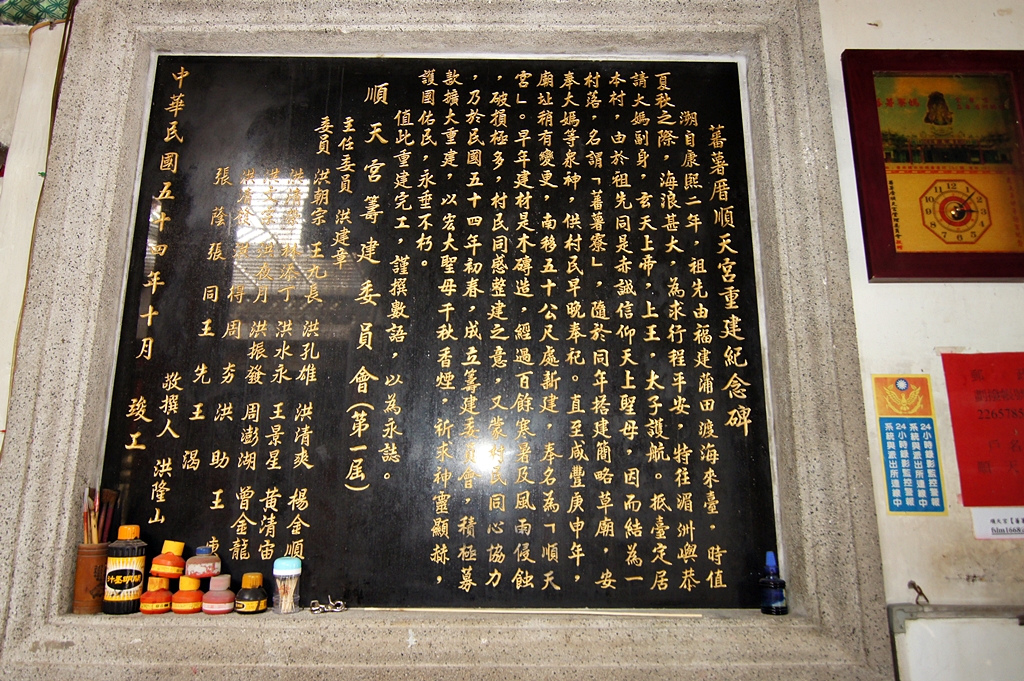 蕃薯厝順天宮重建紀念碑
溯自康熙二年，祖先由福建莆田渡海來臺。時值
夏秋之際，海浪甚大，為求行程平安，特往湄洲嶼恭
請大媽副身，玄天上帝，上王，太子護航。抵臺定居
本村，由於祖先同是赤誠信仰天上聖母，因而結為一
村落，名謂「蕃薯寮」，隨於同年搭建簡略草廟，安
奉大媽等泉神，供村民早晚奉祀。直至咸豐庚申年，
廟址稍有變更，南移五十公尺處新建，奉名為「順天
宮」。早年建材是木磚造，經過百餘寒暑及風雨侵蝕
，破損極多，村民同感整建之意，又蒙村民同心協力
，乃於民國五十四年初春，成立籌建委員會，積極募
款擴大重建，以宏大聖母千秋香煙，祈求神靈顯赫，
護國佑民，永垂不朽。
值此重建完工，謹撰數語，以為永誌。
順天宮籌建委員會(第一屆)
主任委員 洪建章
委員 洪朝宗 王九長 洪孔雄 洪清爽 楊合順
洪水永 王景星 黃清雷
洪振發 周澎湖 曾金龍
張蔭 張同 王先 王濶 王
得 周夯 洪助
敬撰人 洪隆山
中華民國五十四年十月 竣工
24小時錄影監控警報
系統與派出所連線中
24小時錄影監控警報
系統與派出所連線中